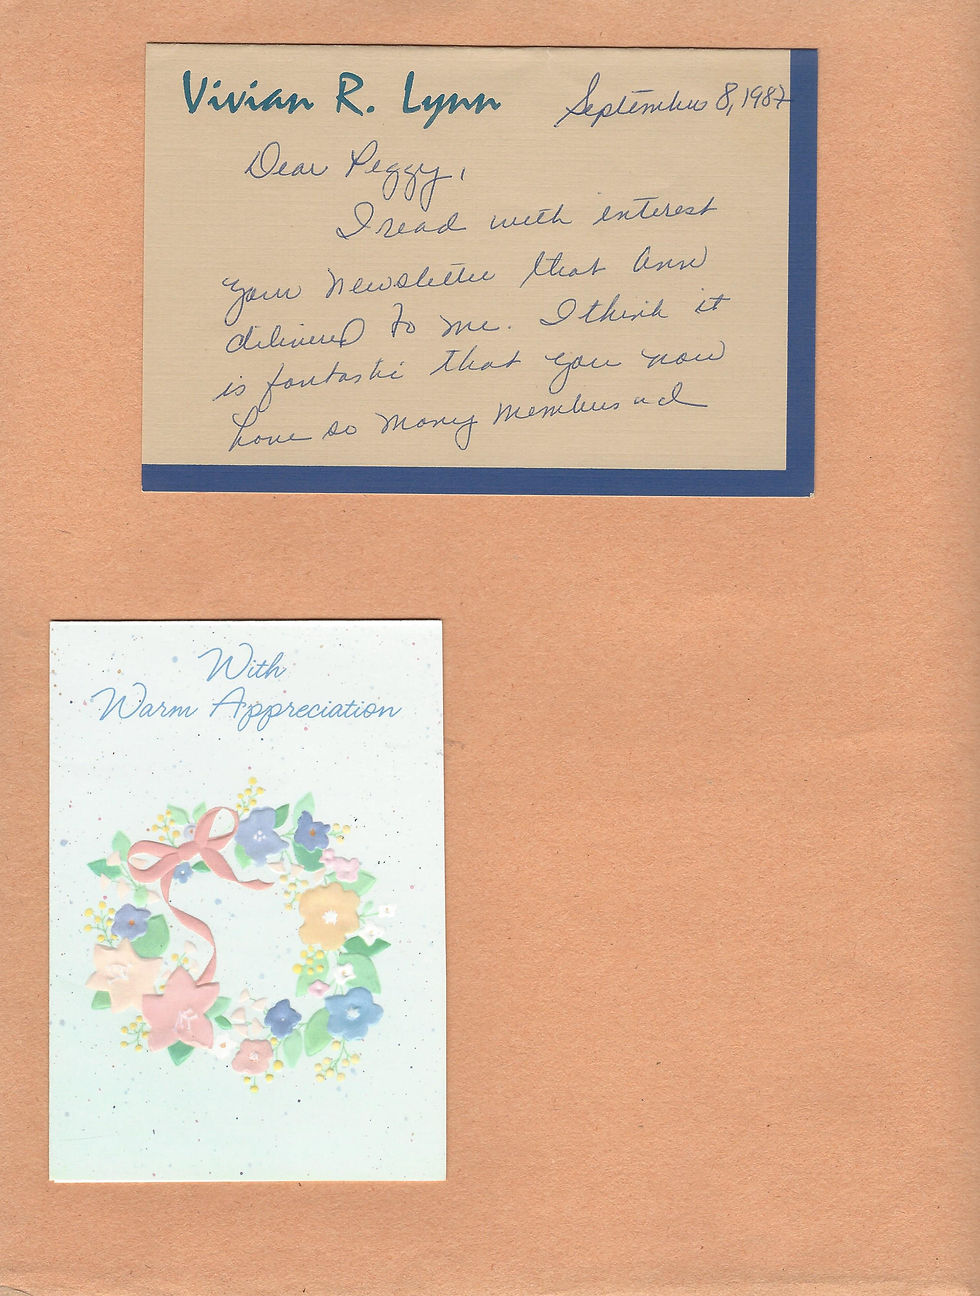 Vivian R. Lynn
September 8, 1987
Dear Peggy,
I read with interest
your Newsletter that Ann
delivered to me. I think it
is fantastic that you now
have so many members and
With
Warm Appreciation